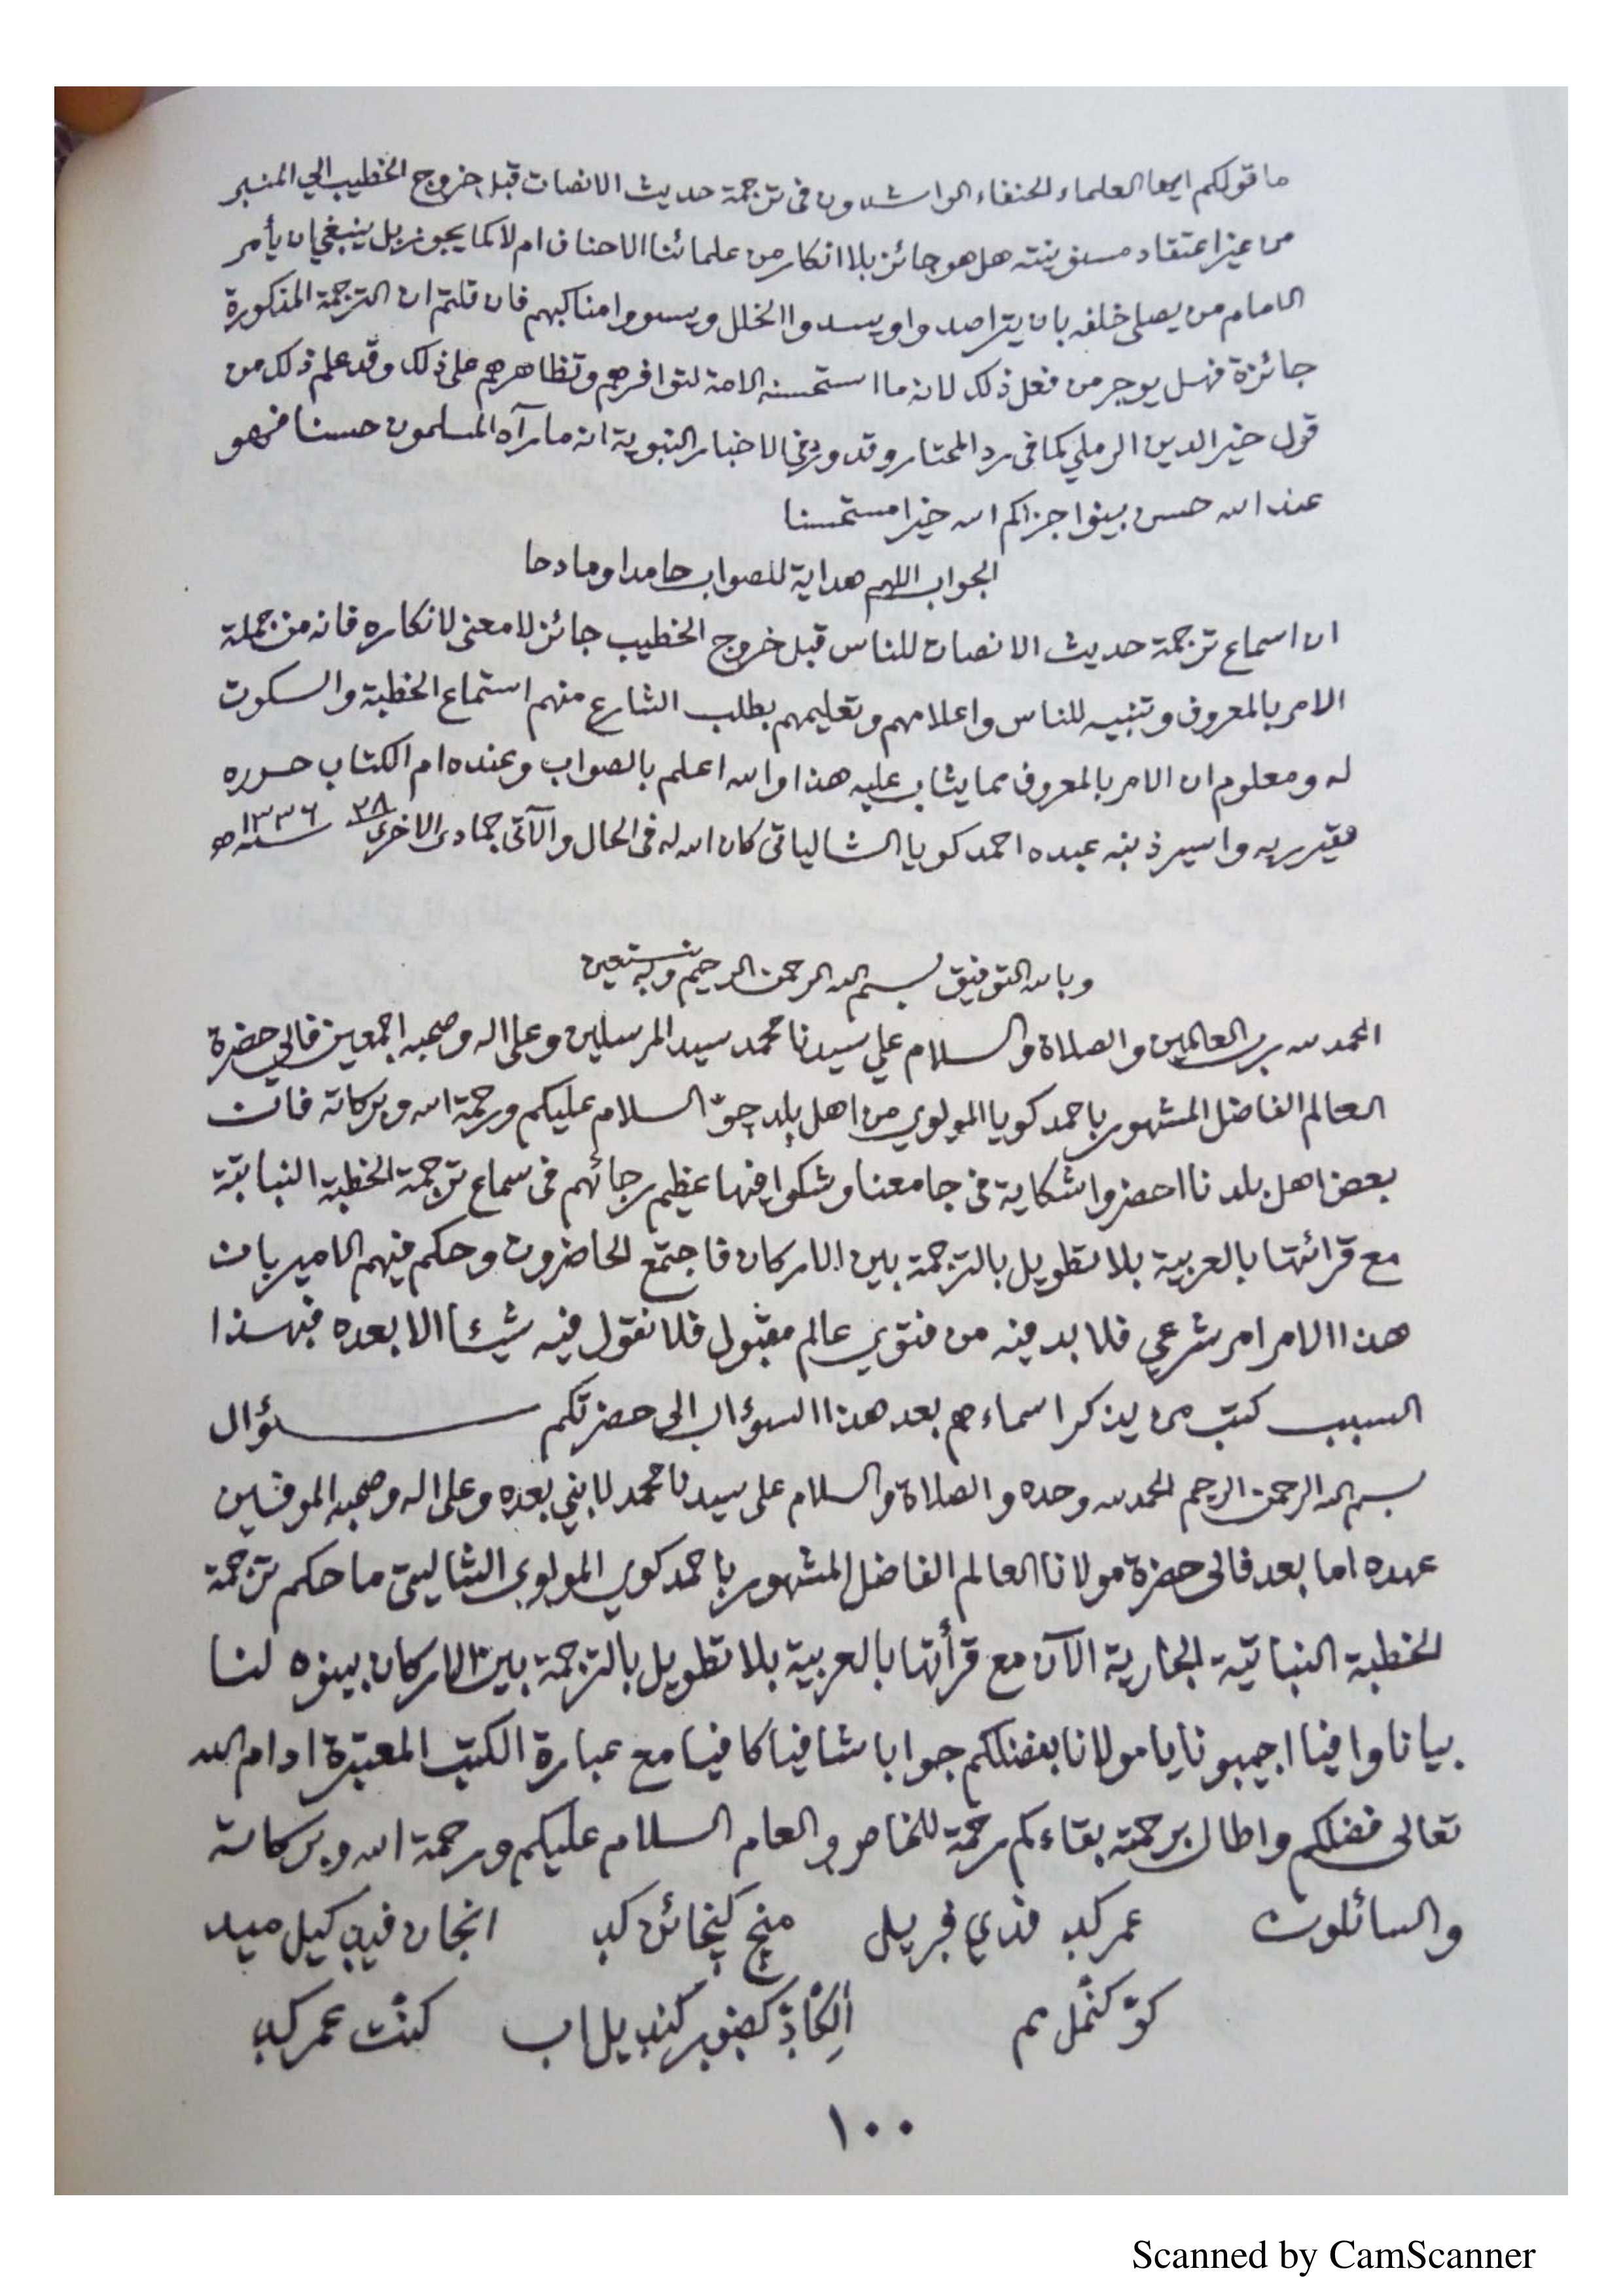 ما قولكم ايها العلماء الحنفاء الراشدون في ترجمة حديث الانصات قبل خروج الخطيب الي المنبر
من غير اعتقاد مسنونيته هل هو جائز بلا انكار من علمائنا الاحناف ام لا كما يجوز بل ينبغي ان يأمر
الامام من يصلي خلفه بان يتراصدوا ويسدوا الخلل ويسووا مناكبهم فان قلتم ان الترجمة المذكورة
جائزة فهل يوجر من فعل ذلك لانه مما استحسنه الامة لتوافرهم وتظاهرهم على ذلك وقد علم ذلك من
قول خير الدين الرملي كما في رد المحتار وقد ورد في الاخبار النبوية انه ما رآه المسلمون حسنا فهو
عند الله حسن بينوا جزاكم الله خيرا مستحسنا
الجواب اللهم هداية للصواب حامدا ومادحا
ان اسماع ترجمة حديث الانصات للناس قبل خروج الخطيب جائز لا معنى لانكاره فانه من جملة
الامر بالمعروف وتنبيه للناس واعلامهم وتعليمهم بطلب الشارع منهم استماع الخطبة والسكوت
له ومعلوم ان الامر بالمعروف مما يثاب عليه هذا والله اعلم بالصواب وعنده ام الكتاب حرره
فقير ربه واسير ذنبه عبده احمد كويا الشالياتي كان الله له في الحال والآتي جمادى الاخرى ٢٨ سنة ١٣٣٦ ه
وبالله التوفيق بسم الله الرحمن الرحيم وبه نستعين
الحمد لله رب العالمين والصلاة والسلام علي سيدنا محمد سيد المرسلين وعلى اله وصحبه اجمعين فالي حضرة
العالم الفاضل المشهور باحمد كويا المولوي من اهل بلد السلام عليكم ورحمة الله وبركاته فان
بعض اهل بلدنا احضروا شكاية في جامعنا وشكوا فيها عظيم رجائهم في سماع ترجمة الخطبة النباتية
مع قرائتها بالعربية بلا تطويل بالترجمة بين الاركان فاجتمع الحاضرون وحكم فيهم الامير بان
هذا الامر امر شرعي فلا بد فيه من فتوي عالم مقبول فلا نقول فيه شيئا الا بعده فبهذا
السبب كتب من يذكر اسماءهم بعد هذا السؤال الى حضرتكم سؤال
بسم الله الرحمن الرحيم الحمد لله وحده والصلاة والسلام على سيدنا محمد لا نبي بعده وعلى اله وصحبه الموفين
عهده اما بعد فالى حضرة مولانا العالم الفاضل المشهور باحمد كوي المولوي الشاليتي ما حكم ترجمة
الخطبة النباتية الجارية الآن مع قرأتها بالعربية بلا تطويل بالترجمة بين الاركان بينوه لنا
بيانا وافيا اجيبونا يا مولانا بفضلكم جوابا شافيا كافيا مع عبارة الكتب المعتبرة ادام الله
تعالى فضلكم واطال برحمته بقاءكم رحمة للخاص والعام السلام عليكم ورحمة الله وبركاته
والسائلون عمر كد
عمر كد
١٠٠
Scanned by CamScanner